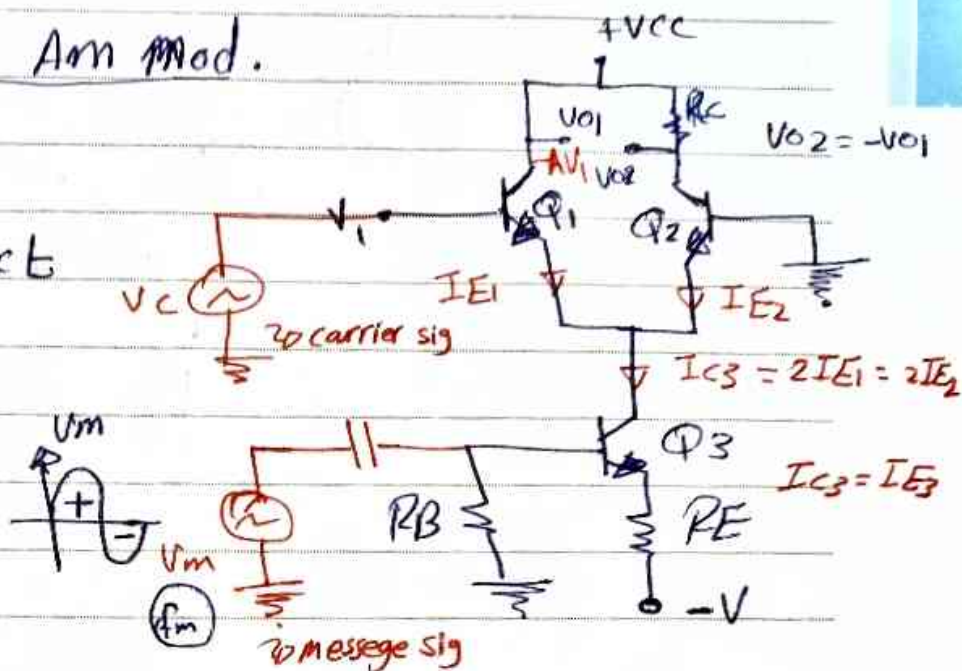 Am Mod.
+VCC
RC
VO1
VO2 = -VO1
AV1
VO2
V1
Q1
Q2
ct
VC
IE1
IE2
carrier sig
IC3 = 2IE1 = 2IE2
Vm
Q3
+
IC3 = IE3
RB
RE
-
Vm
-V
fm
messege sig